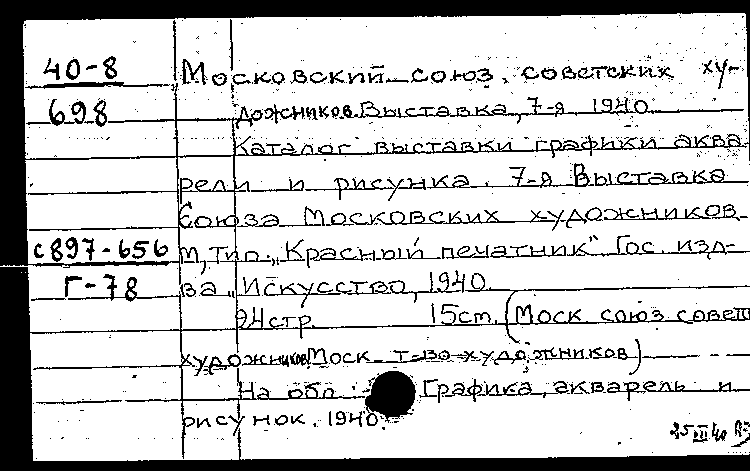 40-8 Московский союз советских ху-
698 дожников. Выставка, 7-я 1940.
Каталог выставки графики аква
рели и рисунка. 7-я Выставка
Союза Московских художников.
с897-656 М, Тип. „Красный печатник“ Гос. изд-
Г-78 ва „Искусство, 1940.
94стр. 15см. (Моск союз совет
художников Моск т-во художников)
На обл: Графика, акварель и
рисунок. 1940.
25 III 40